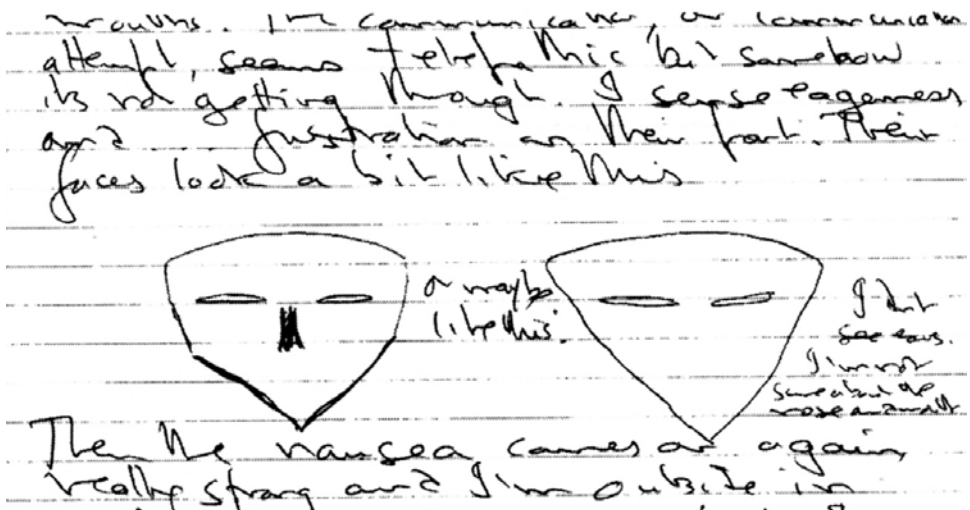 mouths. The communication, or communication
attempt, seems telepathic but somehow
its not getting through. I sense eagerness
and ... frustration on their part. Their
faces look a bit like this
or maybe
like this.
I dont
see ears.
I'm not
sure about the
nose or mouth
Then the nausea comes on again,
really strong and I'm outside in